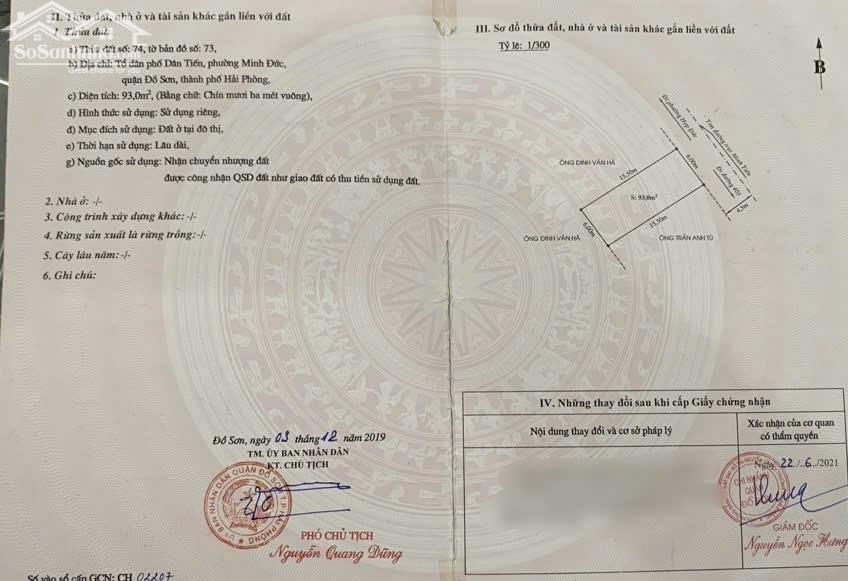 SoSanhnha.com
great choice for you
II. Thửa đất, nhà ở và tài sản khác gắn liền với đất
1. Thửa đất:
a) Thửa đất số: 74, tờ bản đồ số: 73,
b) Địa chỉ: Tổ dân phố Dân Tiến, phường Minh Đức,
quận Đồ Sơn, thành phố Hải Phòng,
c) Diện tích: 93,0m², (Bằng chữ: Chín mươi ba mét vuông),
d) Hình thức sử dụng: Sử dụng riêng,
đ) Mục đích sử dụng: Đất ở tại đô thị,
e) Thời hạn sử dụng: Lâu dài,
g) Nguồn gốc sử dụng: Nhận chuyển nhượng đất
được công nhận QSD đất như giao đất có thu tiền sử dụng đất.
2. Nhà ở: -/-
3. Công trình xây dựng khác: -/-
4. Rừng sản xuất là rừng trồng: -/-
5. Cây lâu năm: -/-
6. Ghi chú:
Đồ Sơn, ngày 03 tháng 12 năm 2019
TM. ỦY BAN NHÂN DÂN
KT. CHỦ TỊCH
PHÓ CHỦ TỊCH
Nguyễn Quang Dũng
Số vào sổ cấp GCN: CH 02207
III. Sơ đồ thửa đất, nhà ở và tài sản khác gắn liền với đất
Tỷ lệ: 1/300
B
Đi phường Hợp Đức
Tim đường trục Minh Tiến
Đi đường 401
ÔNG ĐINH VĂN HÀ
15,50m
6,00m
S: 93,0m²
4,5m
6,00m
15,50m
ÔNG ĐINH VĂN HÀ
ÔNG TRẦN ANH TÚ
IV. Những thay đổi sau khi cấp Giấy chứng nhận
Nội dung thay đổi và cơ sở pháp lý
Xác nhận của cơ quan
có thẩm quyền
Ngày 22/6/2021
CHI NHÁNH
QUẬN
ĐỒ SƠN
GIÁM ĐỐC
Nguyễn Ngọc Hưng